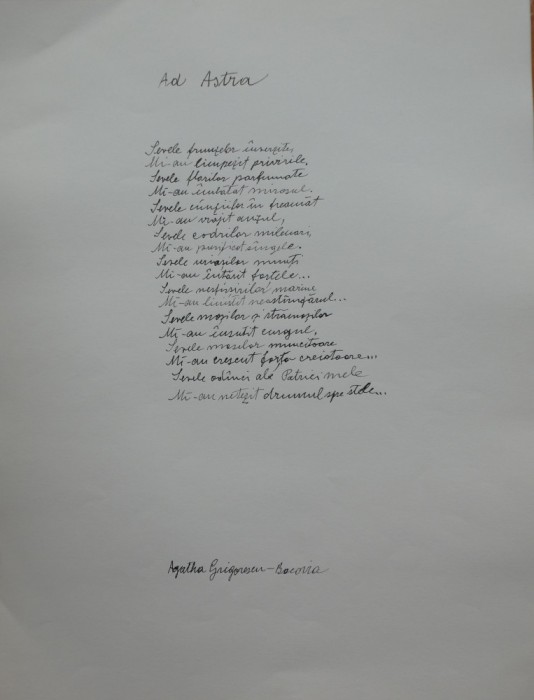 Ad Astra
Sevele frunzelor înverzite,
Mi-au limpezit privirile,
Sevele florilor parfumate
Mi-au îmbătat mirosul.
Sevele crîngurilor în freamăt
Mi-au vrăjit auzul,
Sevele codrilor milenari,
Mi-au purificat sîngele.
Sevele uriașilor munți
Mi-au întărit forțele...
Sevele nesfîrșirilor marine
Mi-au liniștit neastîmpărul...
Sevele moșilor și strămoșilor
Mi-au însutit curajul.
Sevele maselor muncitoare
Mi-au crescut forța creatoare...
Sevele adînci ale Patriei mele
Mi-au netezit drumul spre stele...
Agatha Grigorescu-Bacovia